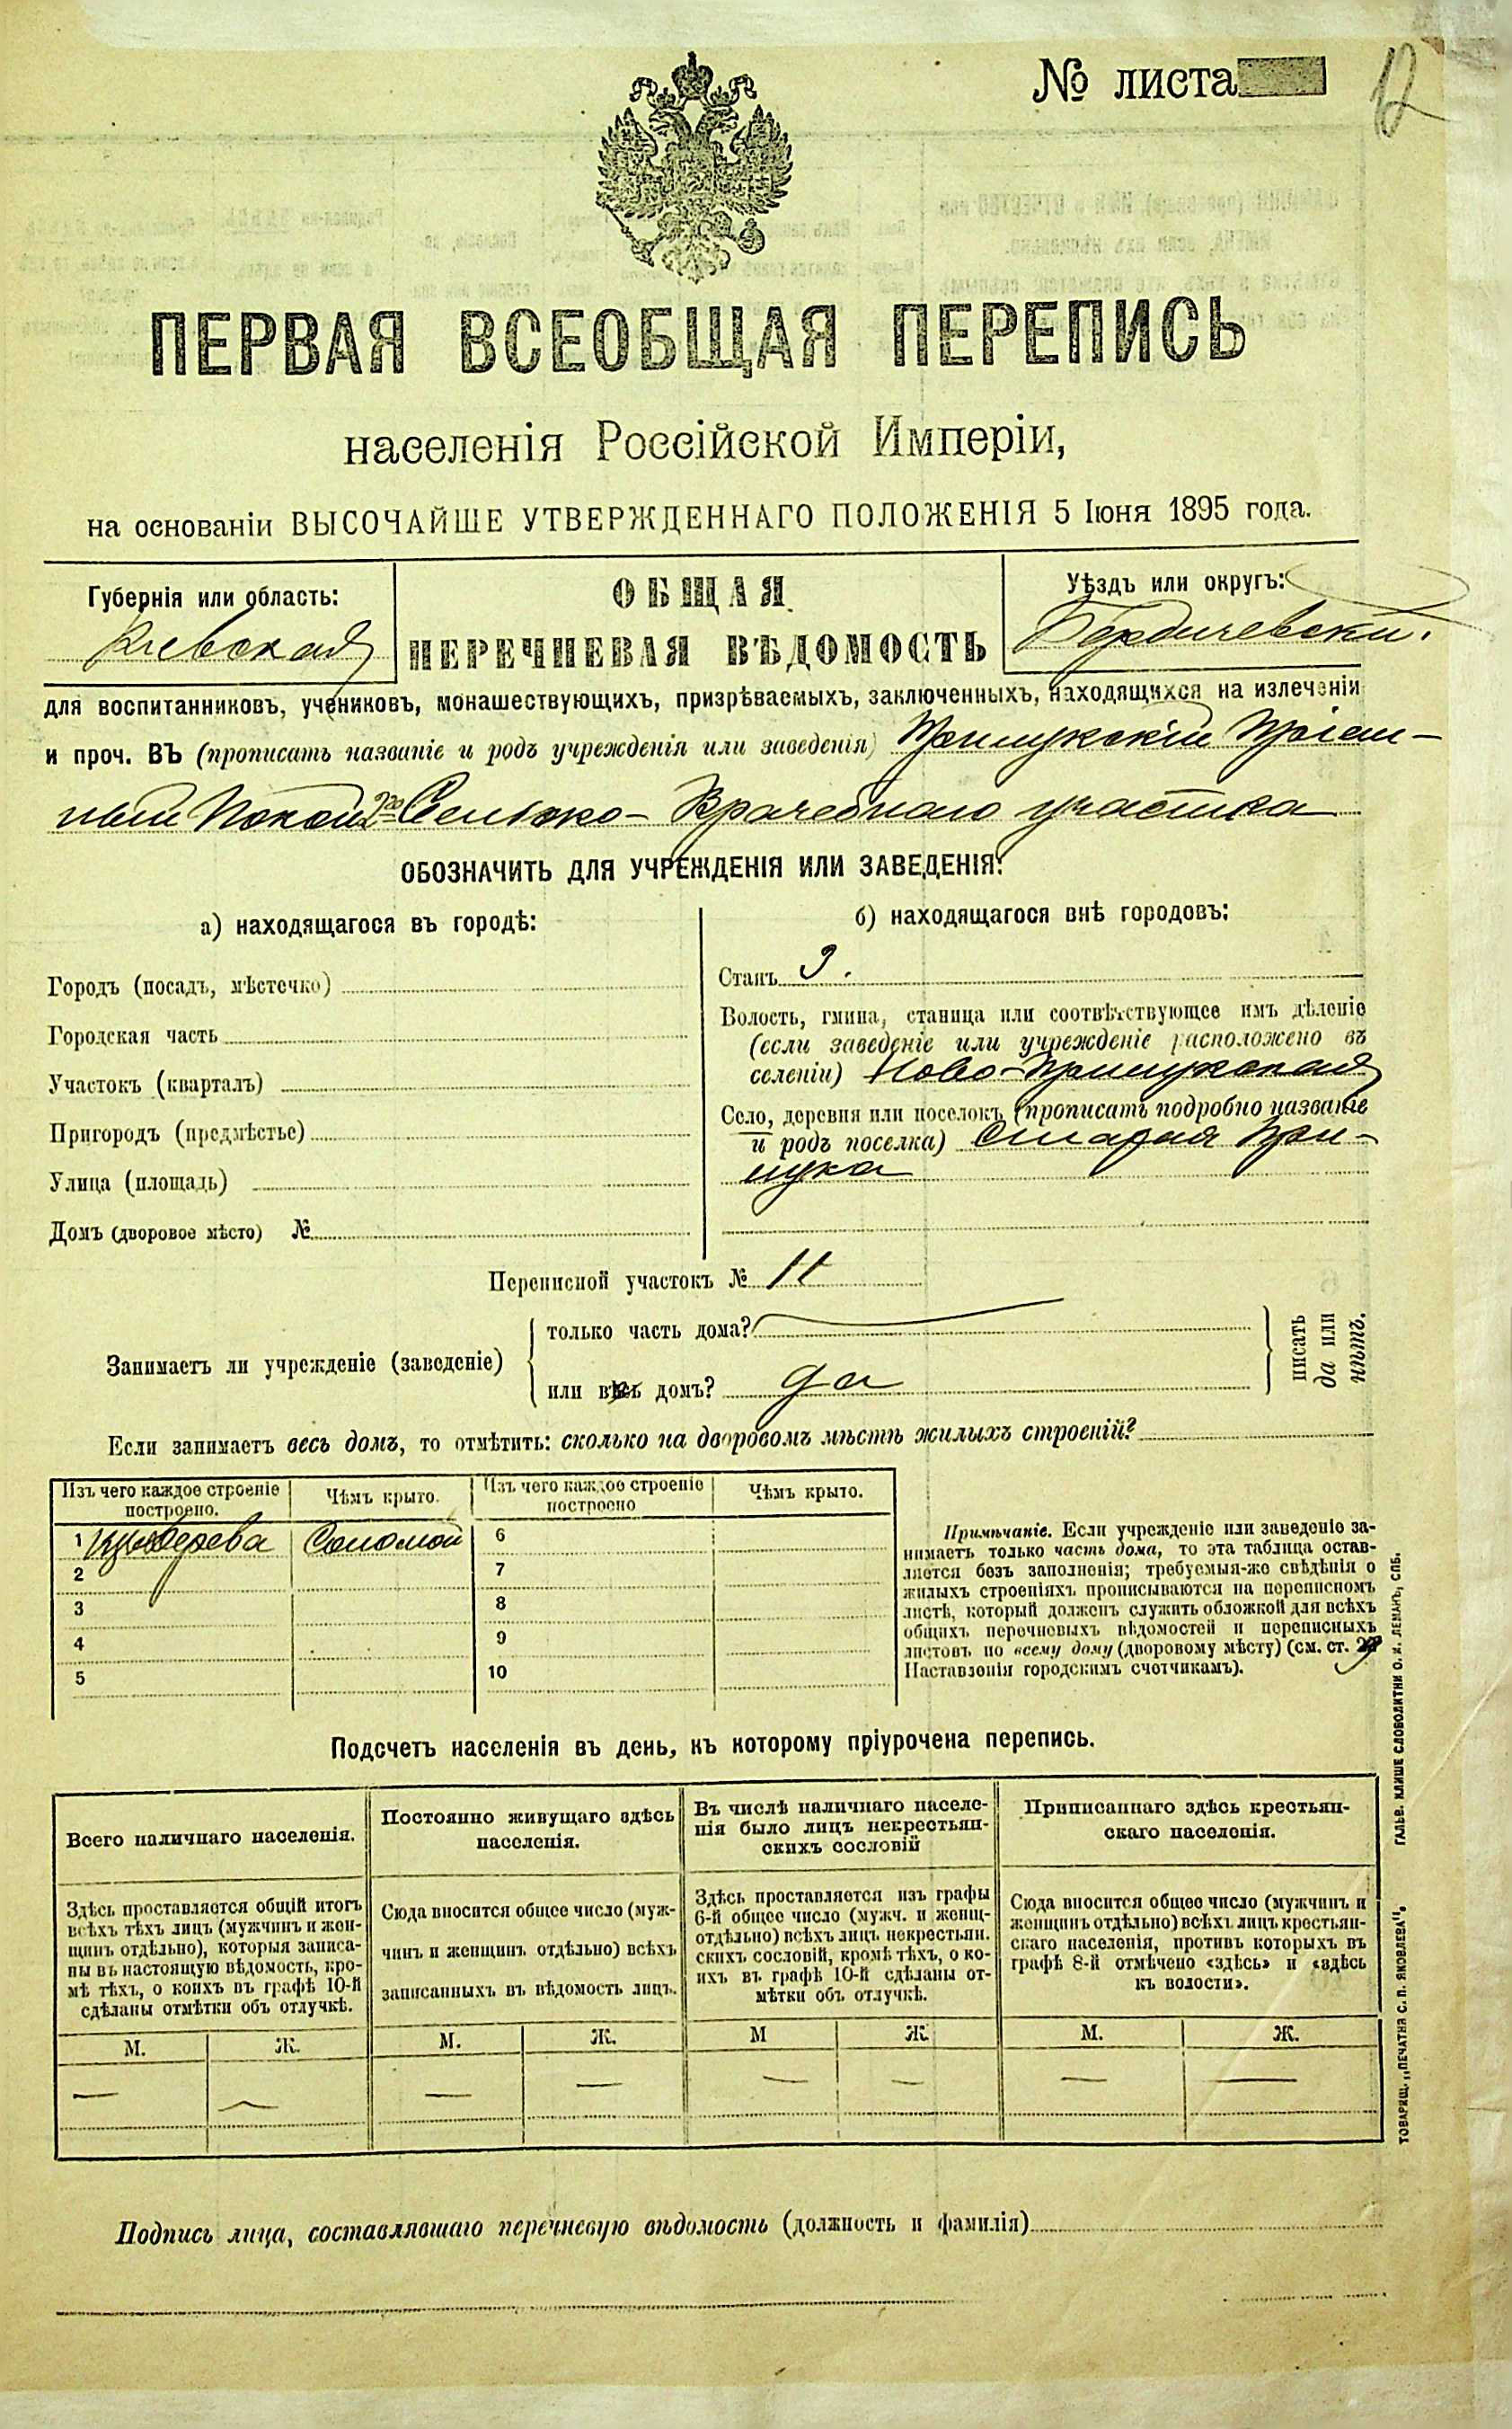 № листа
12
ПЕРВАЯ ВСЕОБЩАЯ ПЕРЕПИСЬ
населенія Россійской Имперіи,
на основаніи ВЫСОЧАЙШЕ УТВЕРЖДЕННАГО ПОЛОЖЕНІЯ 5 Іюня 1895 года.
Губернія или область:
Кіевская
ОБЩАЯ
ПЕРЕЧНЕВАЯ ВѢДОМОСТЬ
Уѣздъ или округъ:
Бердичевскій.
для воспитанниковъ, учениковъ, монашествующихъ, призрѣваемыхъ, заключенныхъ, находящихся на излеченіи
и проч. ВЪ (прописать названіе и родъ учрежденія или заведенія) Прилукскій Пріем-
ный Покой 2го Сельско-Врачебнаго участка
ОБОЗНАЧИТЬ ДЛЯ УЧРЕЖДЕНІЯ ИЛИ ЗАВЕДЕНІЯ:
а) находящагося въ городѣ:
Городъ (посадъ, мѣстечко)
Городская часть
Участокъ (кварталъ)
Пригородъ (предмѣстье)
Улица (площадь)
Домъ (дворовое мѣсто) №
б) находящагося внѣ городовъ:
Станъ 3.
Волость, гмина, станица или соотвѣтствующее имъ дѣленіе
(если заведеніе или учрежденіе расположено въ
селеніи) Ново-Прилукская
Село, деревня или поселокъ (прописать подробно названіе
и родъ поселка) Старая При-
лука
Переписной участокъ № 11
Занимаетъ ли учрежденіе (заведеніе)
только часть дома?
или весь домъ? да
писать
да или
нѣтъ.
Если занимаетъ весь домъ, то отмѣтить: сколько на дворовомъ мѣстѣ жилыхъ строеній?
Изъ чего каждое строеніе построено. Чѣмъ крыто. Изъ чего каждое строеніе построено Чѣмъ крыто.
1 Изъ дерева Соломой 6
2 7
3 8
4 9
5 10
Примѣчаніе. Если учрежденіе или заведеніе за-
нимаетъ только часть дома, то эта таблица остав-
ляется безъ заполненія; требуемыя-же свѣдѣнія о
жилыхъ строеніяхъ прописываются на переписномъ
листѣ, который долженъ служить обложкой для всѣхъ
общихъ перечневыхъ вѣдомостей и переписныхъ
листовъ по всему дому (дворовому мѣсту) (см. ст.
Наставленія городскимъ счетчикамъ).
Подсчетъ населенія въ день, къ которому пріурочена перепись.
Всего наличнаго населенія.
Здѣсь проставляется общій итогъ
всѣхъ тѣхъ лицъ (мужчинъ и жен-
щинъ отдѣльно), которыя записа-
ны въ настоящую вѣдомость, кро-
мѣ тѣхъ, о коихъ въ графѣ 10-й
сдѣланы отмѣтки объ отлучкѣ.
М. Ж.
— —
Постоянно живущаго здѣсь
населенія.
Сюда вносится общее число (муж-
чинъ и женщинъ отдѣльно) всѣхъ
записанныхъ въ вѣдомость лицъ.
М. Ж.
— —
Въ числѣ наличнаго населе-
нія было лицъ некрестьян-
скихъ сословій
Здѣсь проставляется изъ графы
6-й общее число (мужч. и женщ.
отдѣльно) всѣхъ лицъ некрестьян-
скихъ сословій, кромѣ тѣхъ, о ко-
ихъ въ графѣ 10-й сдѣланы от-
мѣтки объ отлучкѣ.
М Ж.
— —
Приписаннаго здѣсь крестьян-
скаго населенія.
Сюда вносится общее число (мужчинъ и
женщинъ отдѣльно) всѣхъ лицъ крестьян-
скаго населенія, противъ которыхъ въ
графѣ 8-й отмѣчено «здѣсь» и «здѣсь
къ волости».
М. Ж.
— —
Подпись лица, составлявшаго перечневую вѣдомость (должность и фамилія)
ТОВАРИЩ. „ПЕЧАТНЯ С. П. ЯКОВЛЕВА“. ГАЛЬВ. КЛИШЕ СЛОВОЛИТНИ О. И. ЛЕМАНЪ, СПБ.